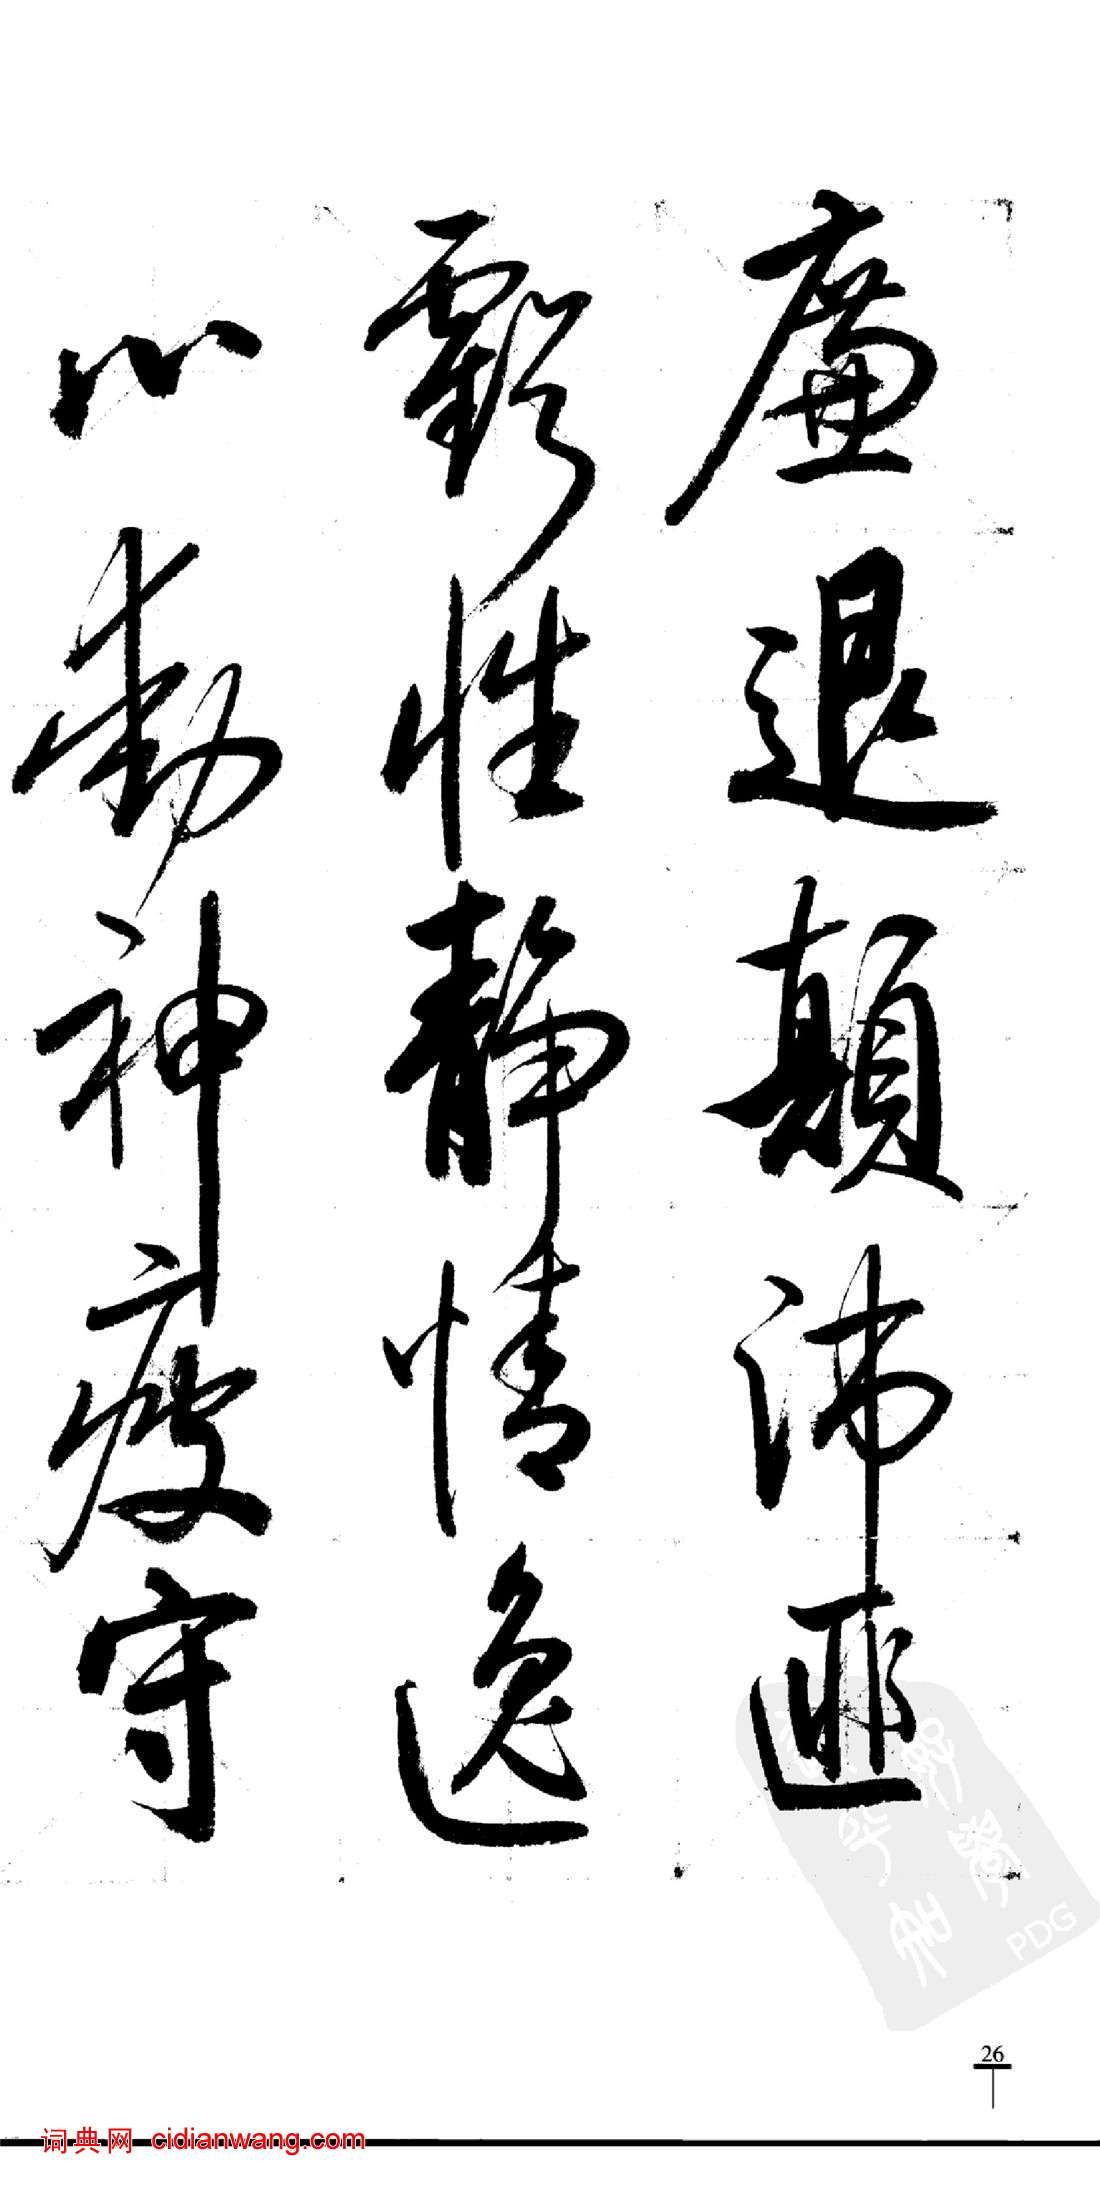 廉退顛沛匪
虧性靜情逸
心動神疲守
26
词典网 cidianwang.com
PDG